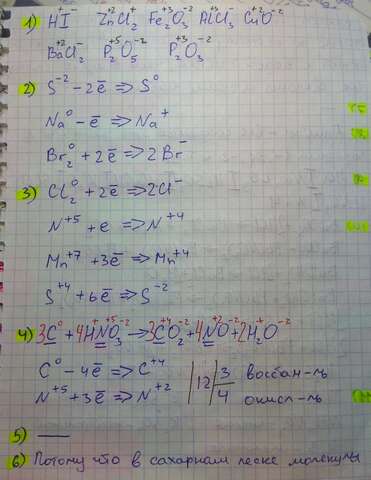 1) HI⁻ Zn⁺²Cl₂⁻ Fe₂⁺³O₃⁻² Al⁺³Cl₃⁻ Cu⁺²O⁻²
Ba⁺²Cl₂⁻ P₂⁺⁵O₅⁻² P₂⁺³O₃⁻²
2) S⁻² - 2ē => S⁰
Na⁰ - ē => Na⁺
Br₂⁰ + 2ē => 2Br⁻
3) Cl₂⁰ + 2ē => 2Cl⁻
N⁺⁵ + e => N⁺⁴
Mn⁺⁷ + 3ē => Mn⁺⁴
S⁺⁴ + 6ē => S⁻²
4) 3C⁰ + 4H⁺N⁺⁵O₃⁻² → 3C⁺⁴O₂⁻² + 4N⁺²O⁻² + 2H₂⁺O⁻²
C⁰ - 4ē => C⁺⁴ | 12 | 3 восстан-ль
N⁺⁵ + 3ē => N⁺² | 4 окисл-ль
5) —
6) Потому что в сахарном песке молекулы